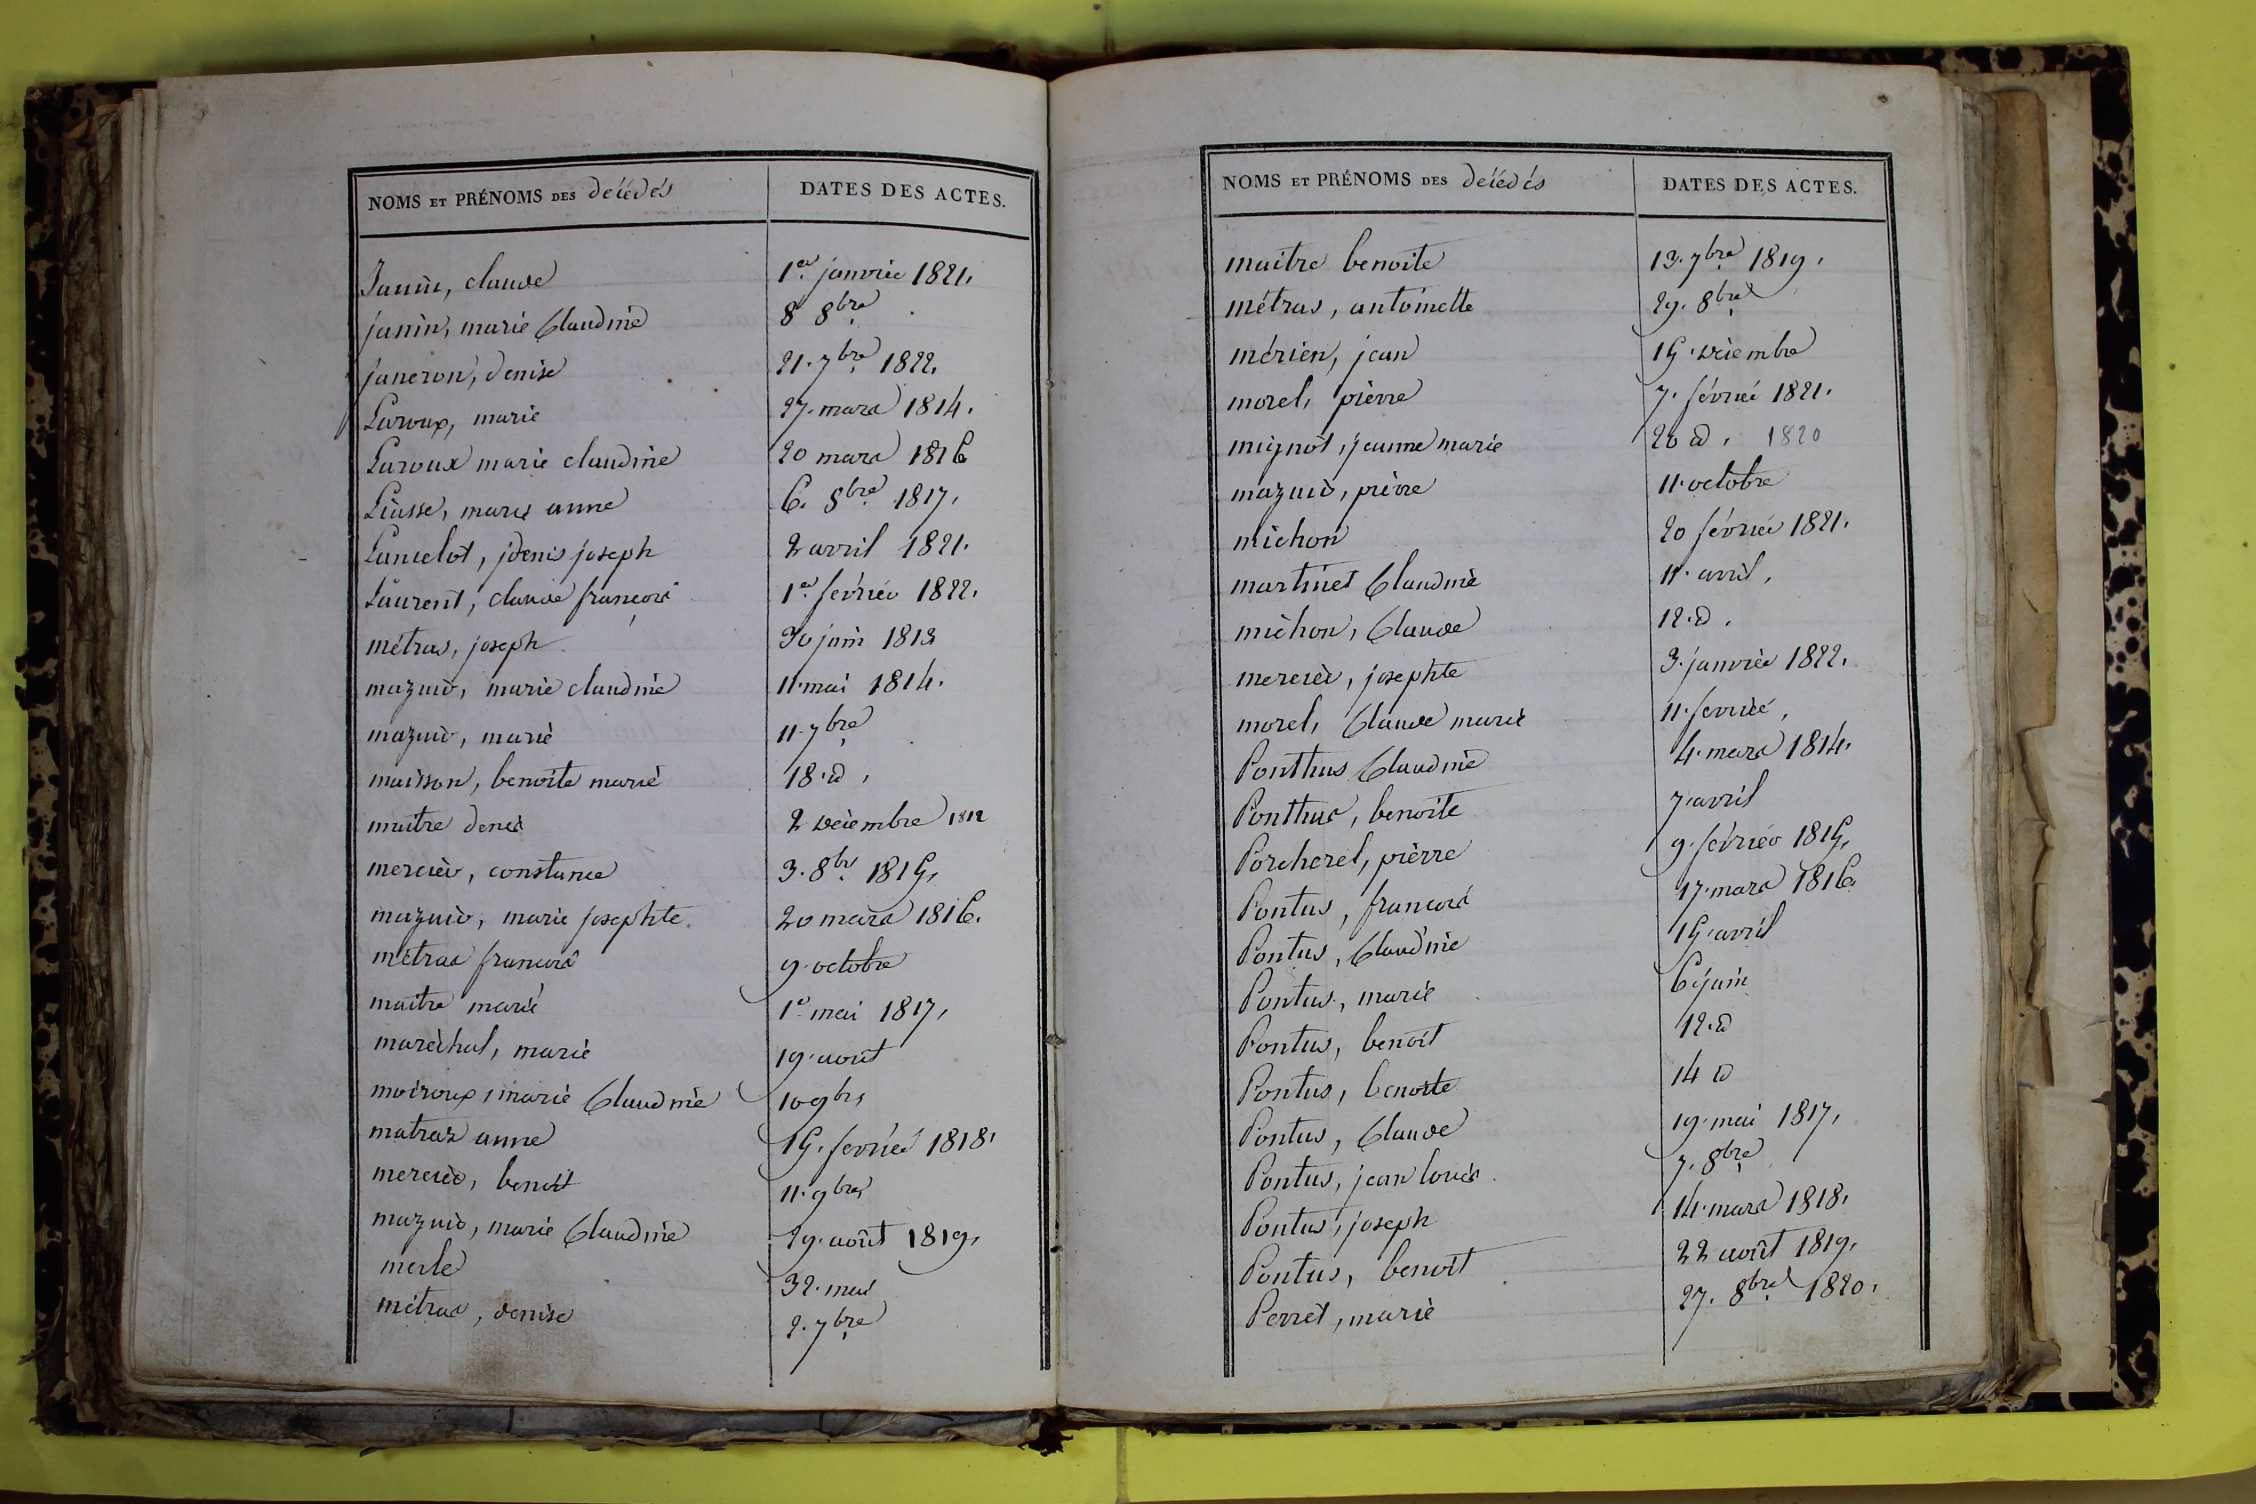 NOMS ET PRÉNOMS DES décédés DATES DES ACTES.
Janin, claude 1er janvier 1821.
janin, marie Claudine 8 8bre
janeron, denise 21. 7bre 1822.
Laroux, marie 27. mars 1814.
Laroux marie claudine 20 mars 1816
marie anne 6. 8bre 1817.
Lancelot, denis joseph 2 avril 1821.
Laurent, claude françois 1er février 1822.
métras, joseph 30 juin 1813
mazuid, marie claudine 11. mai 1814.
mazuid, marie 11. 7bre
maisson, benoite marie 18. d.
maitre denis 2 décembre 1812
mercier, constance 3. 8bre 1815.
mazuid, marie josephte. 20 mars 1816.
métras françois 9. octobre
maitre marie 1er mai 1817.
maréchal, marie 19. août
moiroux, marie Claudine 10 9bre
matras anne 15. février 1818.
mercier, benoit 11. 9bre
mazuid, marie Claudine 29. août 1819.
merle 32. mai
métras, denise 2. 7bre
NOMS ET PRÉNOMS DES décédés DATES DES ACTES.
maitre benoite 13. 7bre 1819.
métras, antoinette 29. 8bre
mérien, jean 15. décembre
morel, pièrre 7. février 1821.
mignot, jeanne marie 20 d. 1820
mazuid, pièrre 11. octobre
michon 20 février 1821.
martinet Claudine 11. avril.
michon, Claude 12. d.
mercier, josephte 3. janvier 1822.
morel, Claude marie 11. février.
Ponthus Claudine 4. mars 1814.
Ponthus, benoite 7 avril
Porcherel, pièrre 9. février 1815.
Pontus, françois 17. mars 1816.
Pontus, Claudine 15. avril
Pontus, marie 6 juin
Pontus, benoit 12. d
Pontus, benoite 14 d
Pontus, Claude 19. mai 1817.
Pontus, jean louis. 7. 8bre
Pontus, joseph 14. mars 1818.
Pontus, benoit 22 août 1819.
Perret, marie 27. 8bre 1820.